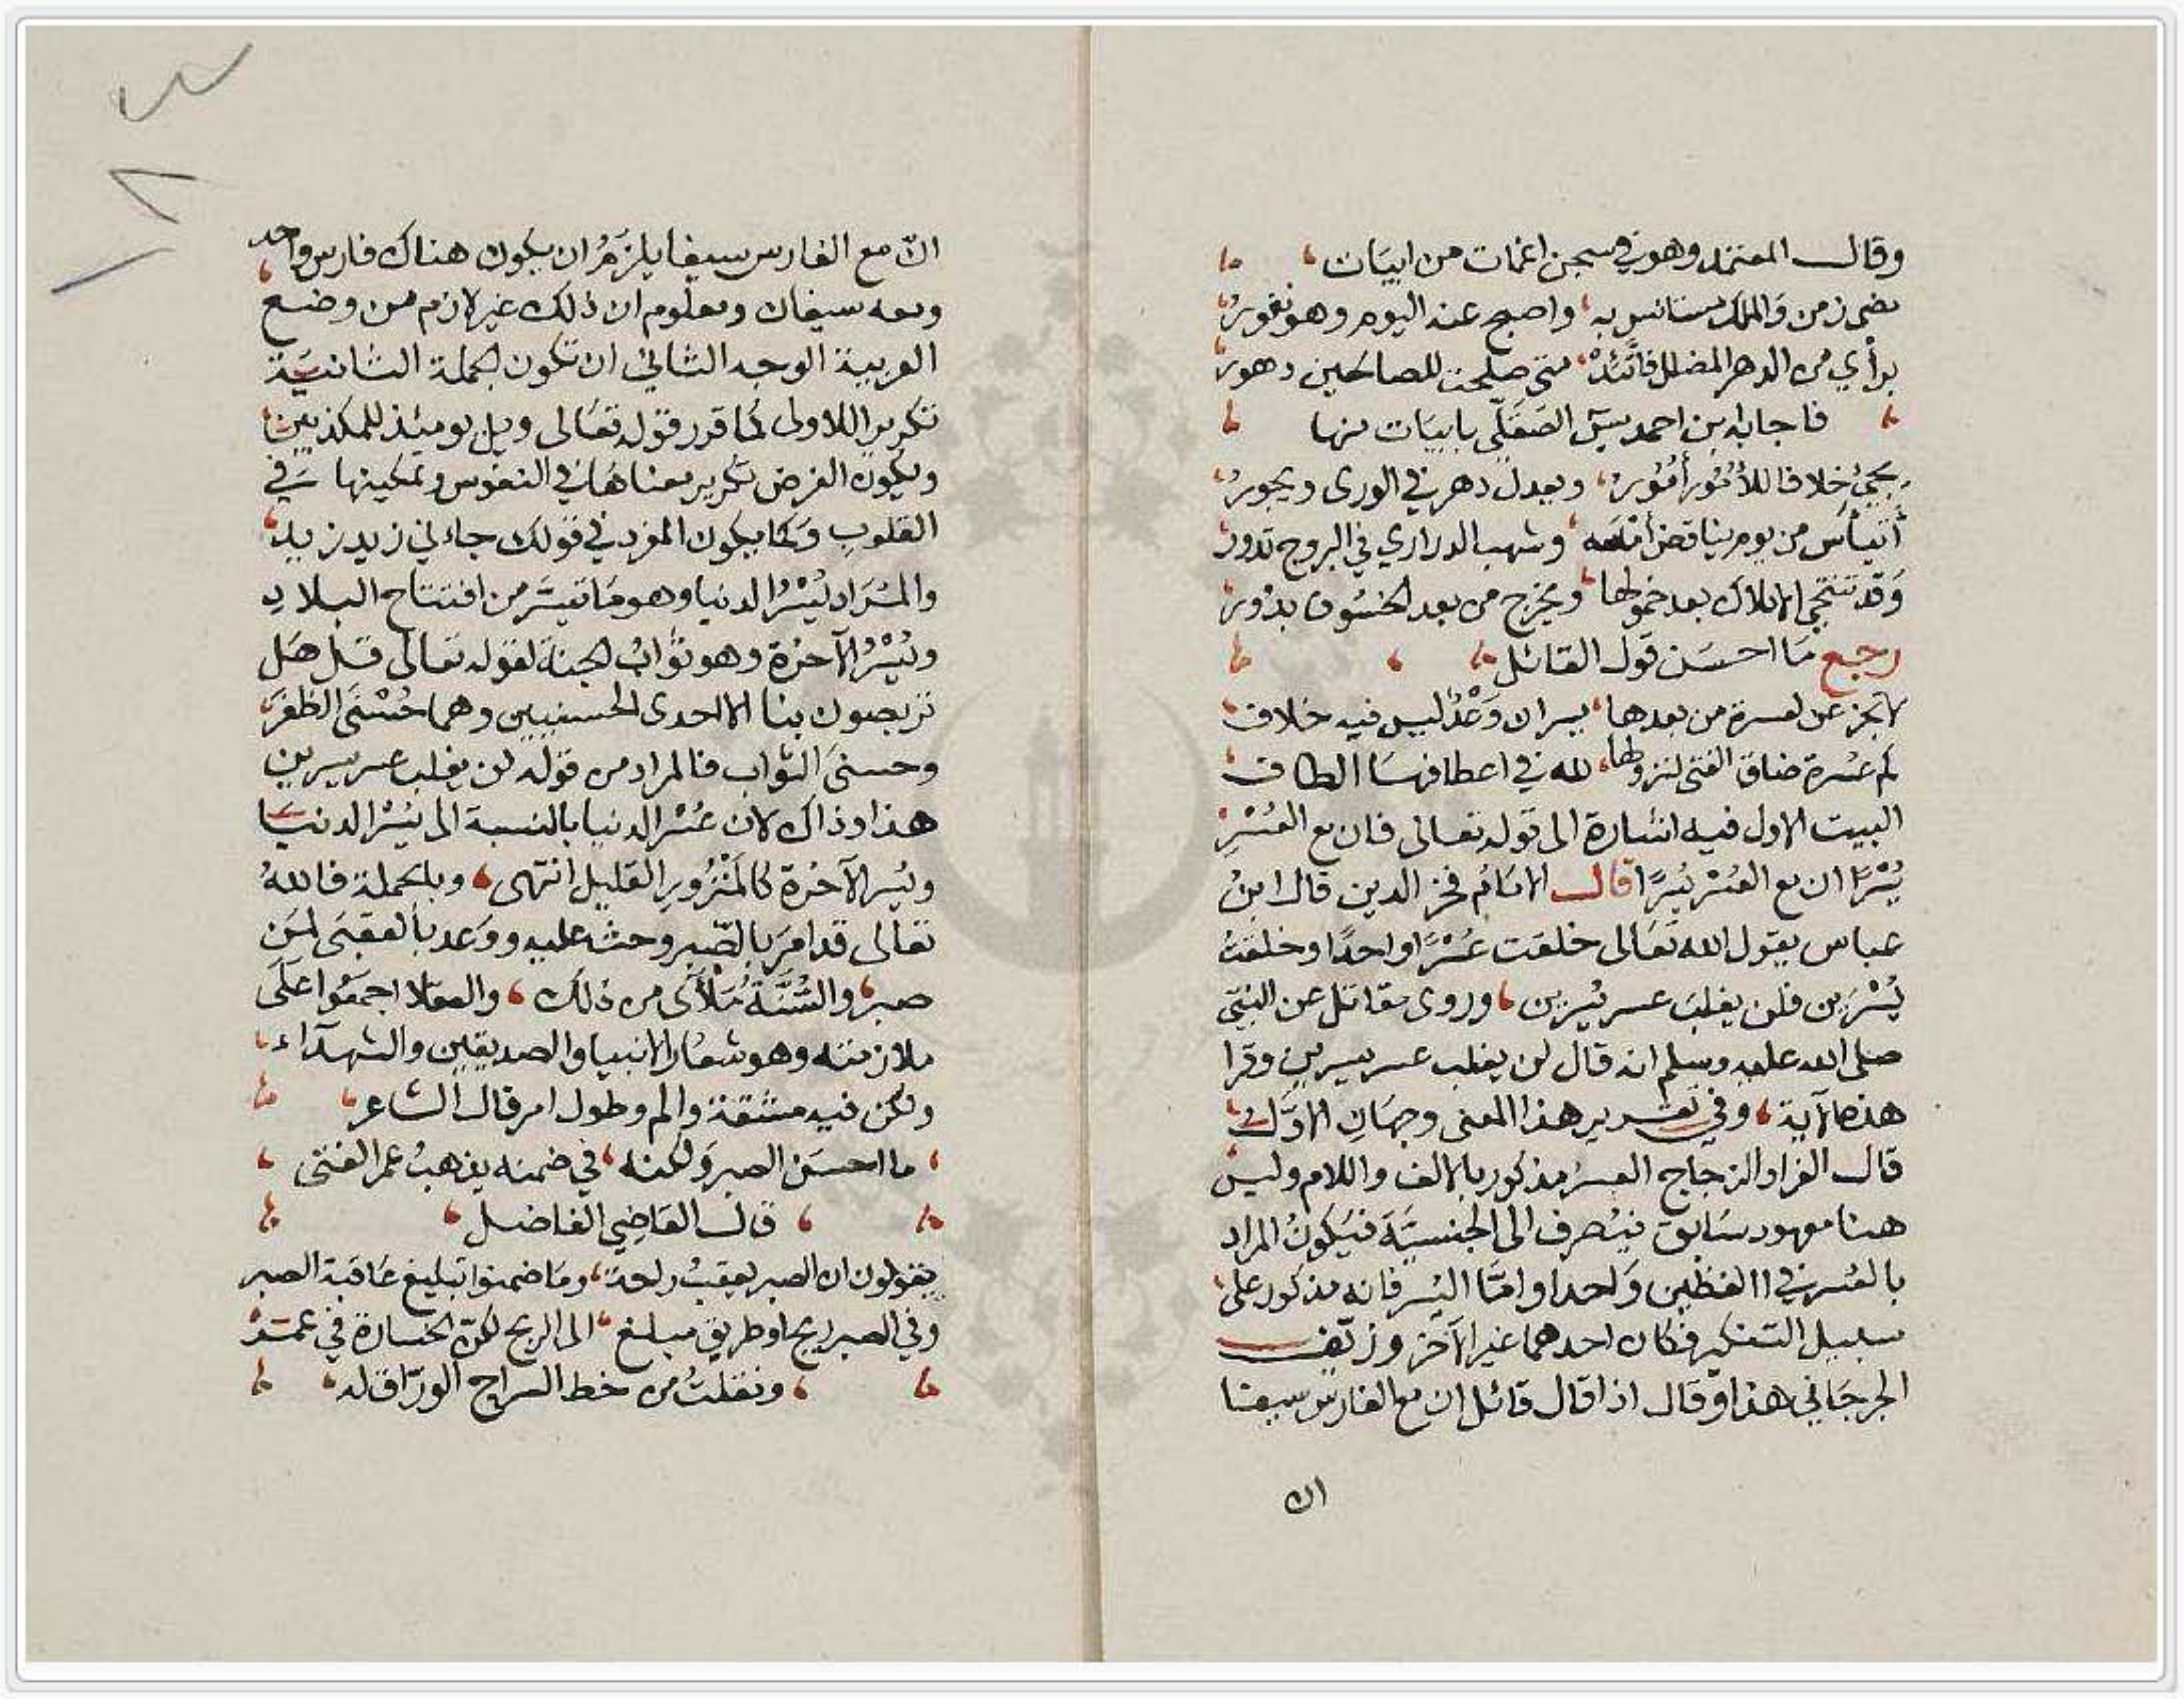 وقال المعتمد وهو في سجن اغمات من ابيات
مضى زمن والملك مستانس به واصبح عنه اليوم وهو نفور
برأي من الدهر المضلل فاتئد متى صلحت للصالحين دهور
فاجابه ابن احمد يس الصقلي بابيات منها
يجئ خلافا للأمور أمور ويعدل دهر في الورى ويجور
أتيأس من يوم يناقض أمسه وشهب الدراري في البروج تدور
وقد تنتخي الاملاك بعد خمولها ويخرج من بعد الخسوف بدور
رجع ما احسن قول القائل
لا تجزعن لعسرة من بعدها يسران وعد ليس فيه خلاف
كم عسرة ضاق الفتى لنزولها لله في اعطافها الطاف
البيت الاول فيه اشارة الى قوله تعالى فان مع العسر
يسرا ان مع العسر يسرا قال الامام فخر الدين قال ابن
عباس يقول الله تعالى خلقت عسرا واحدا وخلقت
يسرين فلن يغلب عسر يسرين وروى مقاتل عن النبي
صلى الله عليه وسلم انه قال لن يغلب عسر يسرين وقرا
هذه الآية وفي تقرير هذا المعنى وجهان الاول
قال الفرا والزجاج العسر مذكور بالالف واللام وليس
هنا معهود سابق فينصرف الى الجنسية فيكون المراد
بالعسر في االفظين واحدا واما اليسر فانه مذكور على
سبيل التنكير فكان احدهما غير الآخر وزيف
الجرجاني هذا وقال اذا قال قائل ان مع الفارس سيفا
ان
انّ مع الفارس سيفا يلزم ان يكون هناك فارس واحد
ومعه سيفان ومعلوم ان ذلك غير لازم من وضع
العربية الوجه الثاني ان تكون الجملة الثانية
تكريرا للاولى كما قرر قوله تعالى ويل يومئذ للمكذبين
ويكون الغرض تكرير معناها في النفوس وتمكينها في
القلوب وكما يكون المفرد في قولك جاءني زيد زيد
والمراد ليسر الدنيا وهو ما تيسر من افتتاح البلاد
ويسر الآخرة وهو ثواب الجنة لقوله تعالى قل هل
تربصون بنا الا احدى الحسنيين وهما حسنى الظفر
وحسنى الثواب فالمراد من قوله لن يغلب عسر يسرين
هذا وذاك لان عسر الدنيا بالنسبة الى يسر الدنيا
ويسر الآخرة كالمنزور القليل انتهى وبالجملة فالله
تعالى قد امر بالصبر وحث عليه ووعد بالعقبى لمن
صبر والسنة ملأى من ذلك والعقلا اجمعوا على
ملازمته وهو شعار الانبيا والصديقين والشهدآء
ولكن فيه مشقة والم وطول امر قال الشاعر
ما احسن الصبر ولكنه في ضمنه يذهب عمر الفتى
قال القاضي الفاضل
يقولون ان الصبر يعقب راحة وما ضمنوا تبليغ عاقبة الصبر
وفي الصبر ربح او طريق مبلغ الى الربح لكن الخسارة في عمر
ونقلت من خط السراج الوراق له